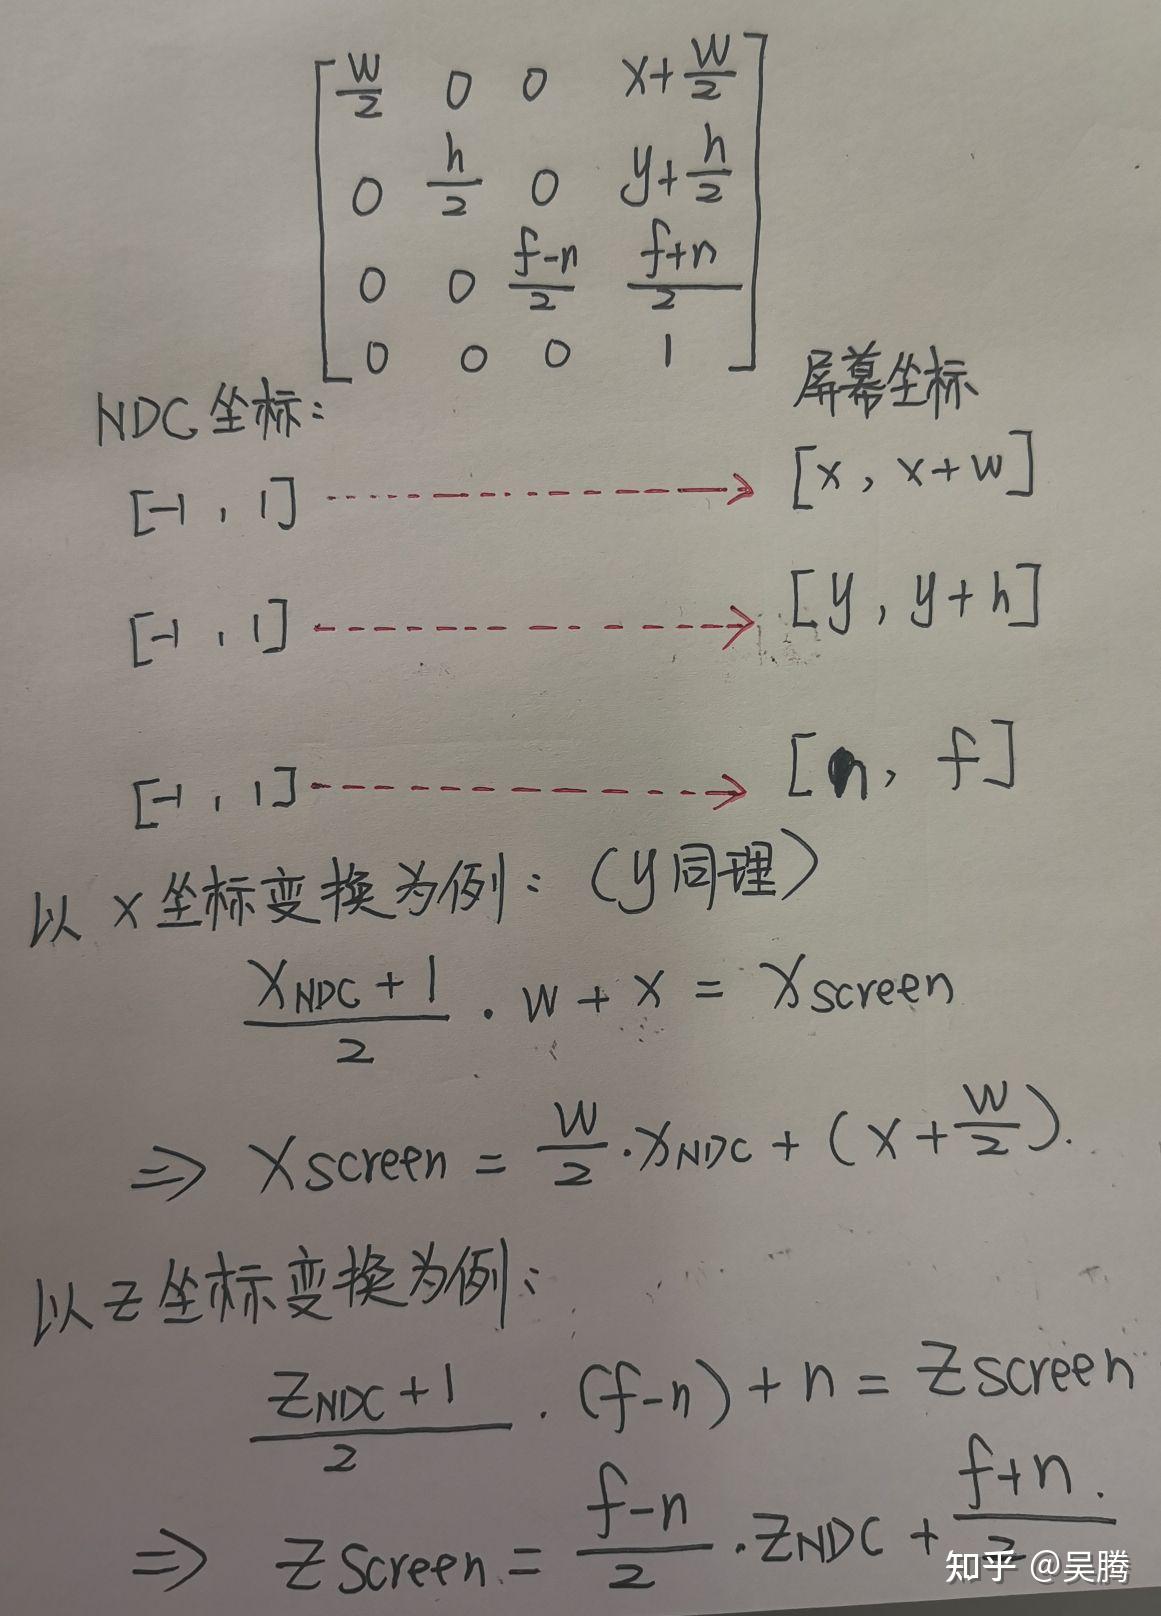 w/2 0 0 x+w/2
0 h/2 0 y+h/2
0 0 f-n/2 f+n/2
0 0 0 1
NDC坐标: 屏幕坐标
[-1, 1] [x, x+w]
[-1, 1] [y, y+h]
[-1, 1] [n, f]
以x坐标变换为例: (y同理)
(x_NDC+1)/2 · w + x = x_screen
⇒ x_screen = w/2 · x_NDC + (x+w/2).
以z坐标变换为例:
(z_NDC+1)/2 · (f-n) + n = z_screen
⇒ z_screen = (f-n)/2 · z_NDC + (f+n)/2.
知乎 @吴腾